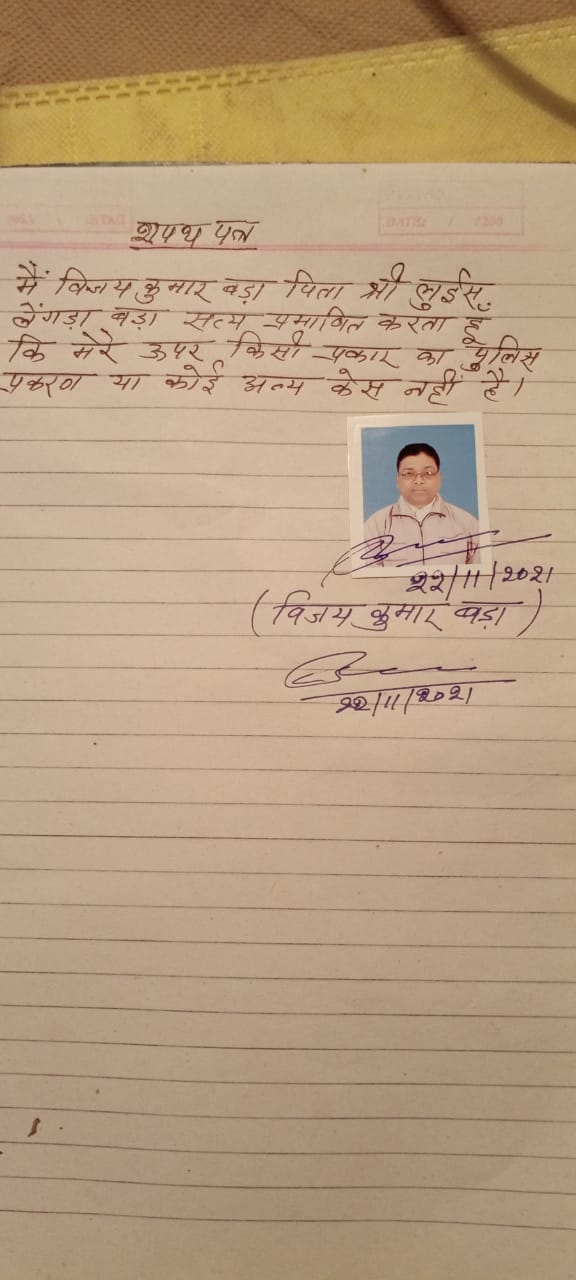 शपथ पत्र
मैं विजय कुमार बड़ा पिता श्री लुईस
लेंगड़ा बड़ा सत्य प्रमाणित करता हूँ
कि मेरे ऊपर किसी प्रकार का पुलिस
प्रकरण या कोई अन्य केस नहीं है।
22/11/2021
(विजय कुमार बड़ा)
22/11/2021